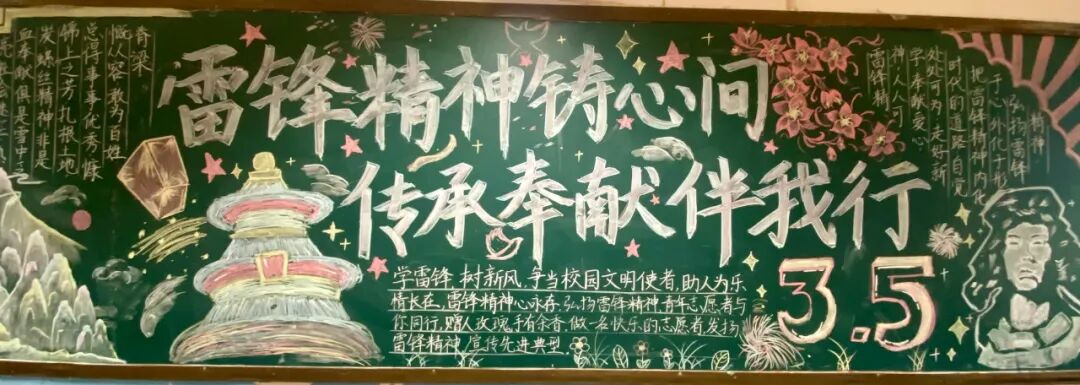 雷锋精神铸心间
传承奉献伴我行
3.5
学雷锋,树新风,争当校园文明使者,助人为乐
情长在,雷锋精神心永存,弘扬雷锋精神,青年志愿者与
你同行,赠人玫瑰,手有余香,做一名快乐的志愿者,发扬
雷锋精神,宣传先进典型.
脊梁
慨从容敢为百姓
总得事事优秀慷
锦上之方扎根土地
发螺丝精神非是
血奉献俱是雪中
雷锋精
神人人可
学奉献爱心
处处可为走好新
时代的道路自觉
把雷锋精神内化
于心外化于形
弘扬雷锋
精神